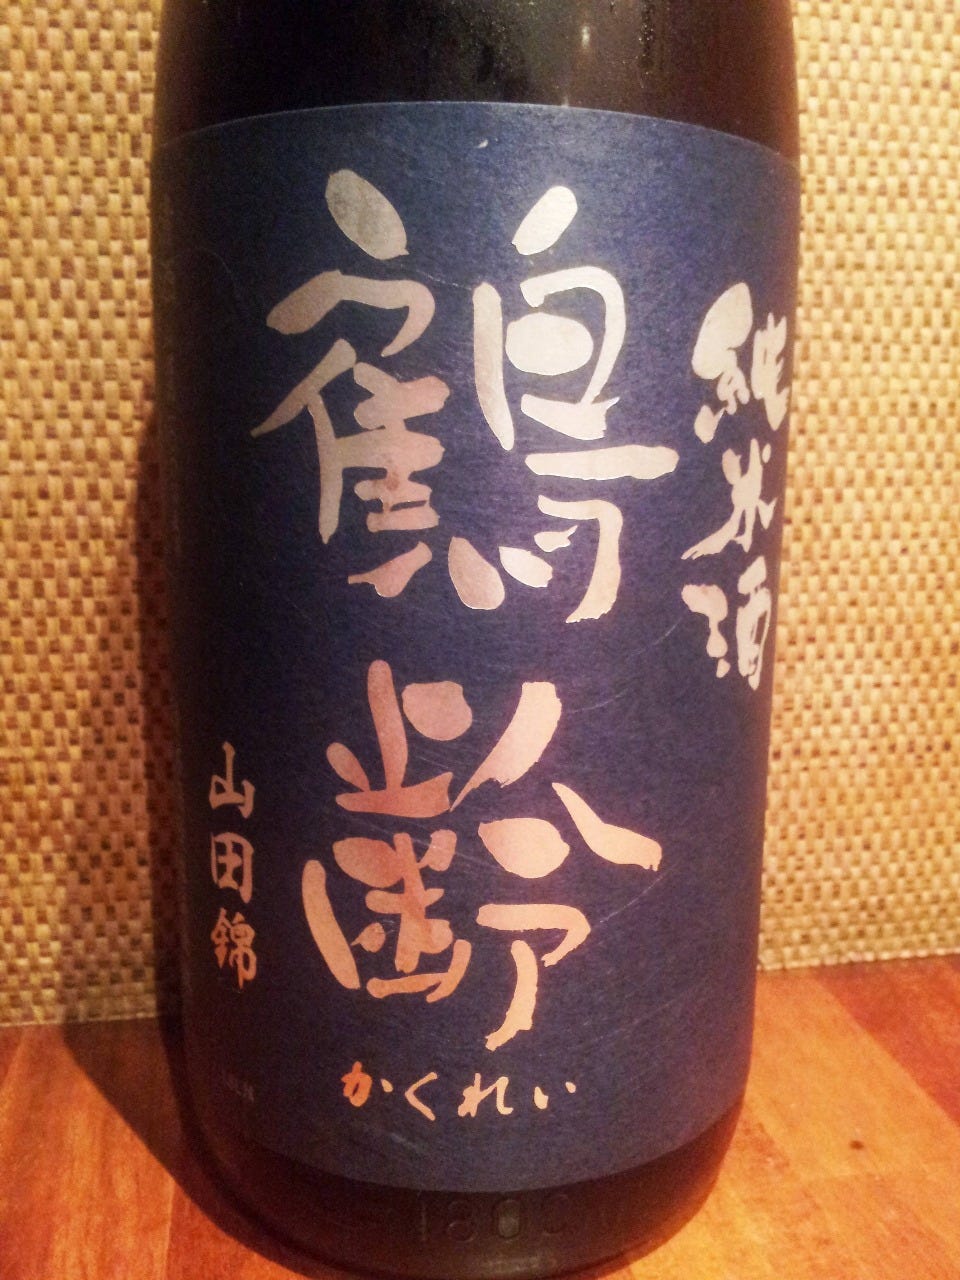 純米酒
鶴齢
山田錦
かくれい
1800